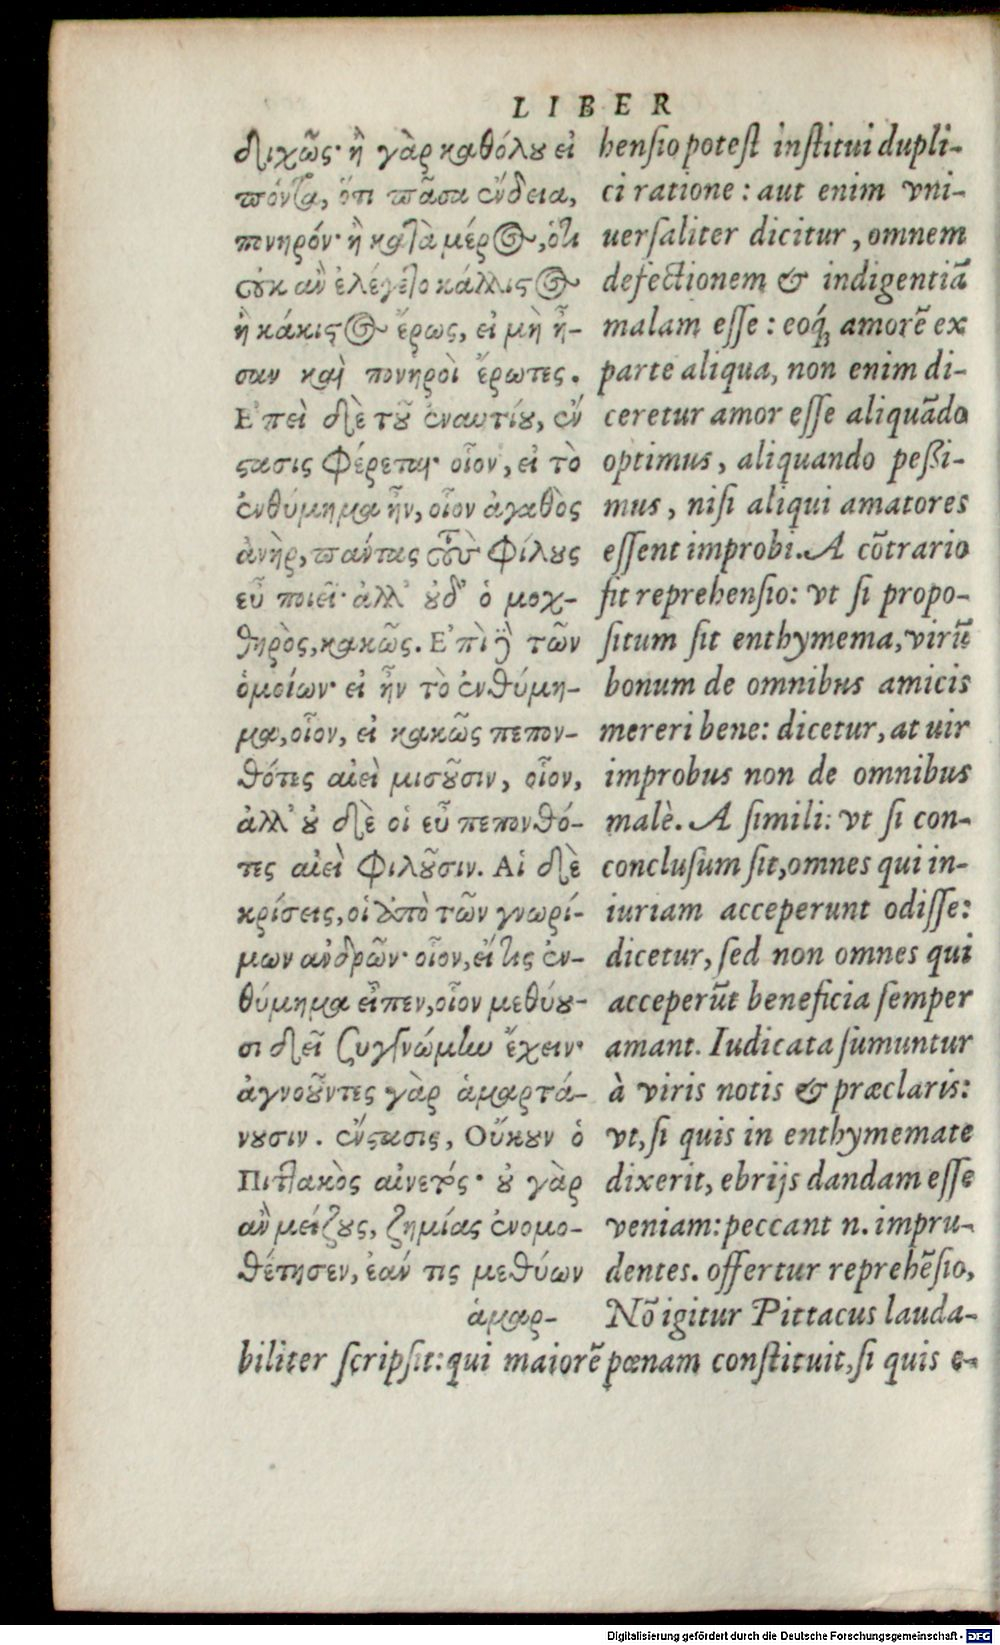 LIBER
διχῶς· ἢ γὰρ καθόλου εἰ
πόντα, ὅτι πᾶσα ἔνδεια,
πονηρόν· ἢ κατὰ μέρος, ὅτι
οὐκ ἂν ἐλέγετο κάλλιστος
ἢ κάκιστος ἔρως, εἰ μὴ ἦ-
σαν καὶ πονηροὶ ἔρωτες.
Ἐπεὶ δὲ τοῦ ἐναντίου, ἔν
στασις φέρεται· οἷον, εἰ τὸ
ἐνθύμημα ἦν, οἷον ἀγαθὸς
ἀνὴρ, πάντας τοὺς φίλους
εὖ ποιεῖ· ἀλλ' οὐδ' ὁ μοχ-
θηρὸς, κακῶς. Ἐπὶ δὲ τῶν
ὁμοίων· εἰ ἦν τὸ ἐνθύμη-
μα, οἷον, εἰ κακῶς πεπον-
θότες αἰεὶ μισοῦσιν, οἷον,
ἀλλ' οὐ δὲ οἱ εὖ πεπονθό-
τες αἰεὶ φιλοῦσιν. Αἱ δὲ
κρίσεις, οἱ ἀπὸ τῶν γνωρί-
μων ἀνδρῶν· οἷον, εἴ τις ἐν-
θύμημα εἶπεν, οἷον μεθύου-
σι δεῖ συγγνώμην ἔχειν·
ἀγνοοῦντες γὰρ ἁμαρτά-
νουσιν. ἔνστασις, Οὔκουν ὁ
Πιττακὸς αἰνετός· οὐ γὰρ
ἂν μείζους, ζημίας ἐνομο-
θέτησεν, ἐάν τις μεθύων
ἁμαρ-
hensio potest institui dupli-
ci ratione: aut enim vni-
uersaliter dicitur, omnem
defectionem & indigentiā
malam esse: eoq́; amorē ex
parte aliqua, non enim di-
ceretur amor esse aliquādo
optimus, aliquando peßi-
mus, nisi aliqui amatores
essent improbi. A cōtrario
fit reprehensio: vt si propo-
situm sit enthymema, virū
bonum de omnibus amicis
mereri bene: dicetur, at uir
improbus non de omnibus
malè. A simili: vt si con-
conclusum sit, omnes qui in-
iuriam acceperunt odisse:
dicetur, sed non omnes qui
acceperūt beneficia semper
amant. Iudicata sumuntur
à viris notis & præclaris:
vt, si quis in enthymemate
dixerit, ebrijs dandam esse
veniam: peccant n. impru-
dentes. offertur reprehēsio,
Nō igitur Pittacus lauda-
biliter scripsit: qui maiorē pœnam constituit, si quis e-
Digitalisierung gefördert durch die Deutsche Forschungsgemeinschaft - DFG